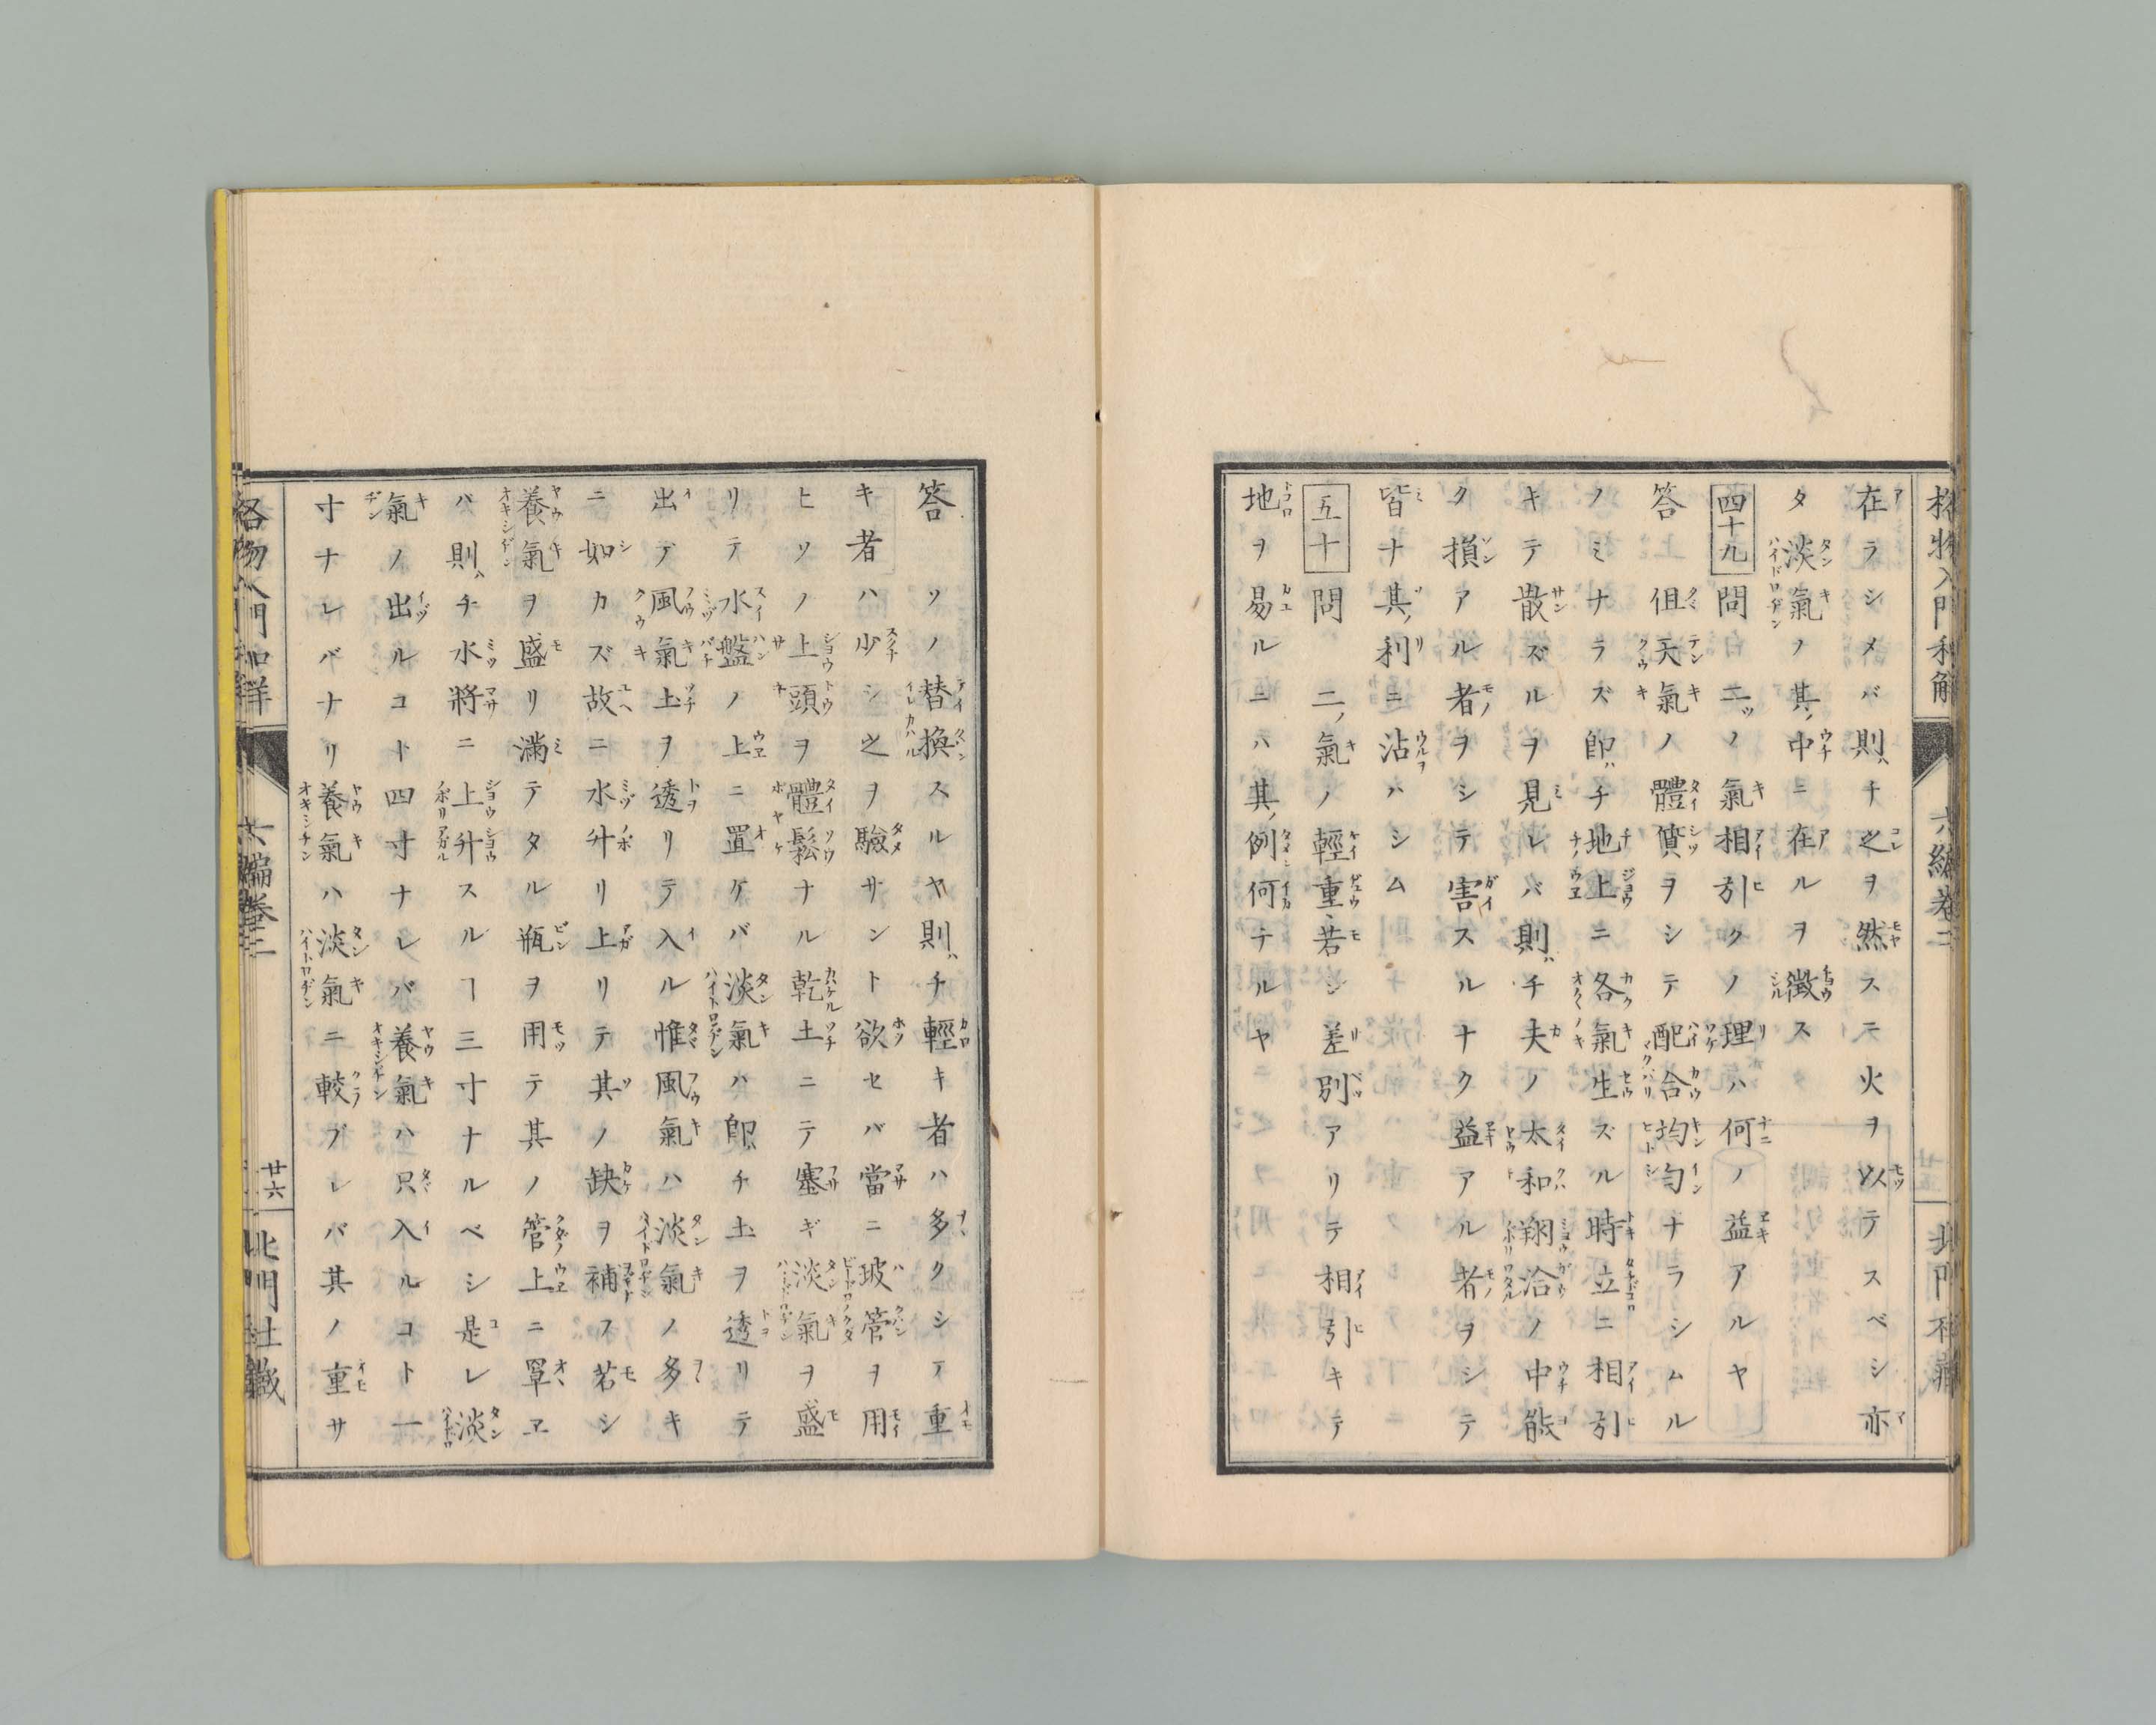 格物入門和解 六編卷二 北門社藏
在ラシメバ則チ之ヲ然ス二火ヲ以テスベシ亦
タ淡氣ノ其中ニ在ルヲ徴ス
四十九 問 二ノ氣相引クノ理ハ何ノ益アルヤ
答 但天氣ノ體質ヲシテ配合均勻ナラシムル
ノミナラズ即チ地上ニ各氣生ズル時立ニ相引
キテ散ズルヲ見レバ則チ夫ノ太和翔洽ノ中能
ク損アル者ヲシテ害スルナク益アル者ヲシテ
皆ナ其利ニ沾ハシム
五十 問 二氣ノ輕重若シ差別アリテ相引キテ
地ヲ易ルニハ其例何テルヤ
答 ソノ替換スルヤ則チ輕キ者ハ多クシテ重
キ者ハ少シ之ヲ驗サント欲セバ當ニ玻管ヲ用
ヒソノ上頭ヲ體鬆ナル乾土ニテ塞ギ淡氣ヲ盛
リテ水盤ノ上ニ置ケバ淡氣ハ即チ土ヲ透リテ
出デ風氣上ヲ透リテ入ル惟風氣ハ淡氣ノ多キ
ニ如カズ故ニ水升リ上リテ其ノ缺ヲ補ス若シ
養氣ヲ盛リ滿テタル瓶ヲ用テ其ノ管上ニ罩ヱ
バ則チ水將ニ上升スルヿ三寸ナルベシ是レ淡
氣ノ出ルコト四寸ナレバ養氣ハ只入ルコト一
寸ナレバナリ養氣ハ淡氣ニ較ブレバ其ノ重サ
格物入門和解 六編卷二 廿六 北門社藏